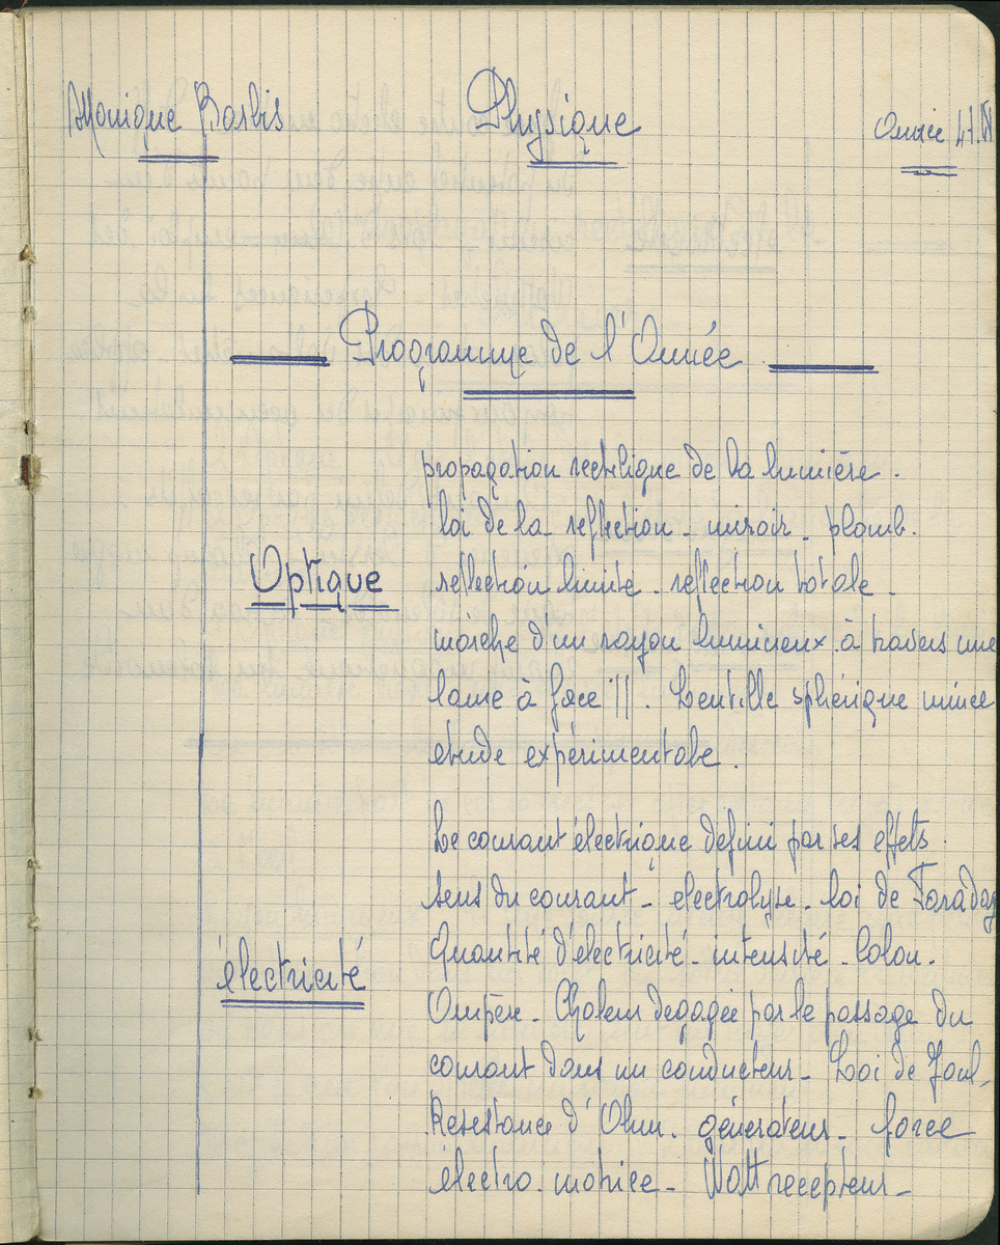 Monique Barbis Physique Année 47.
Programme de l'Année
propagation rectiligne de la lumière.
loi de la reflection - miroir - plomb.
Optique
reflection limité - reflection totale.
marche d'un rayon lumineux à travers une
lame à face //. Lentille sphérique mince
etude expérimentale.
Le courant électrique defini par ses effets.
sens du courant - electrolyse - loi de Faraday
Quantité d'électricité - intensité - Colon.
électricité
Ampère - Chaleur degagée par le passage du
courant dans un conducteur - Loi de Joul,
Resistance d'Ohm. générateur - force
électro. motrice - Watt recepteur -